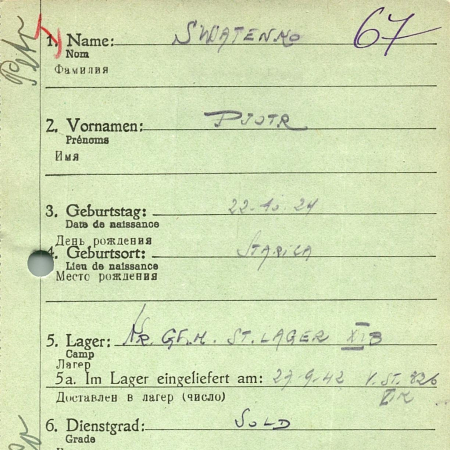 Petr
67
1. Name: SWATENKO
Nom
Фамилия
2. Vornamen: PJOTR
Prénoms
Имя
3. Geburtstag: 22.10.24
Date de naissance
День рождения
4. Geburtsort: STARICA
Lieu de naissance
Место рождения
5. Lager: KR. GF. M. ST. LAGER XIB
Camp
Лагер
5a. Im Lager eingeliefert am: 27-9-42 V. ST. 326
Доставлен в лагер (число)
6. Dienstgrad: SOLD
Grade